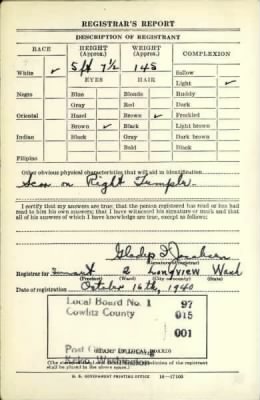 REGISTRAR'S REPORT
DESCRIPTION OF REGISTRANT
RACE HEIGHT (Approx.) WEIGHT (Approx.) COMPLEXION
White ✓ 5 ft 7½ 145 Sallow
EYES HAIR Light ✓
Negro Blue Blonde Ruddy
Gray Red Dark
Oriental Hazel Brown ✓ Freckled
Brown ✓ Black Light brown
Indian Black Gray Dark brown
Bald Black
Filipino
Other obvious physical characteristics that will aid in identification
Scar on Right Temple
I certify that my answers are true; that the person registered has read or has had
read to him his own answers; that I have witnessed his signature or mark and that
all of his answers of which I have knowledge are true, except as follows:
Gladys I.
(Signature of registrar)
Registrar for 2 Longview Wash
(Precinct) (Ward) (City or county) (State)
Date of registration October 16th, 1940
Local Board No. 1 97
Cowlitz County 015
001
Post
Kelso Washington
(STAMP OF LOCAL BOARD)
of the registrant
shall be placed in the above space.)
U. S. GOVERNMENT PRINTING OFFICE 16-17105